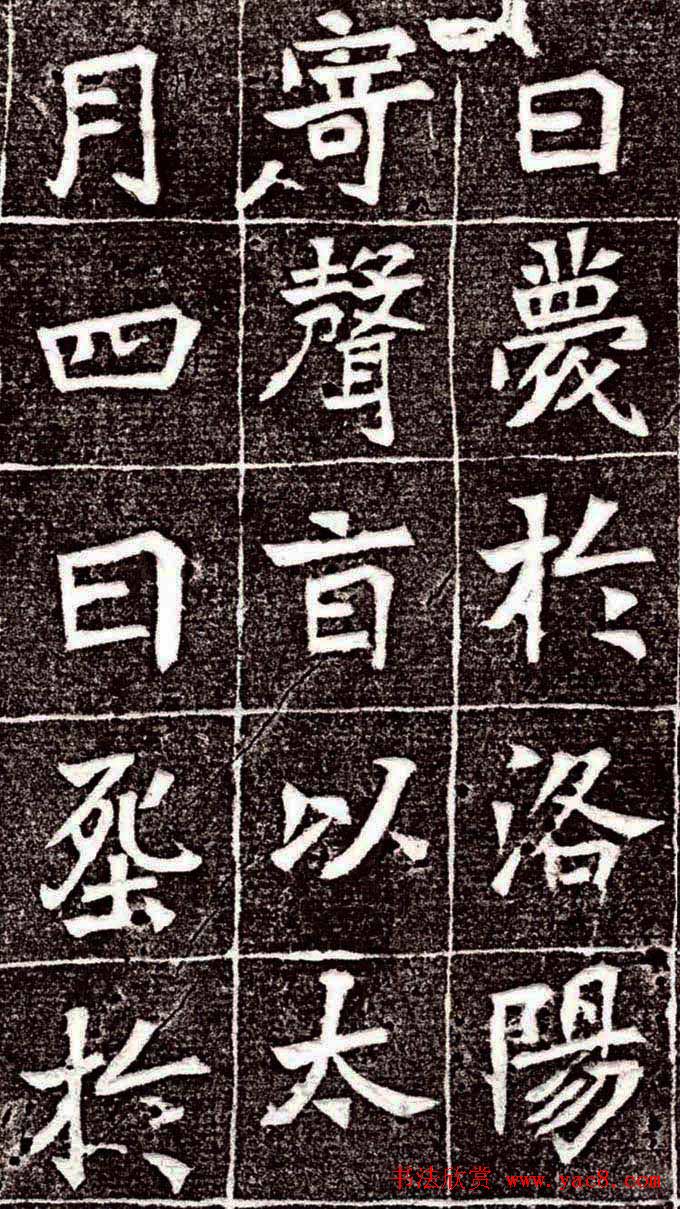 日薨於洛陽
寄聲盲以太
月四日塟於
书法欣赏 www.yac8.com